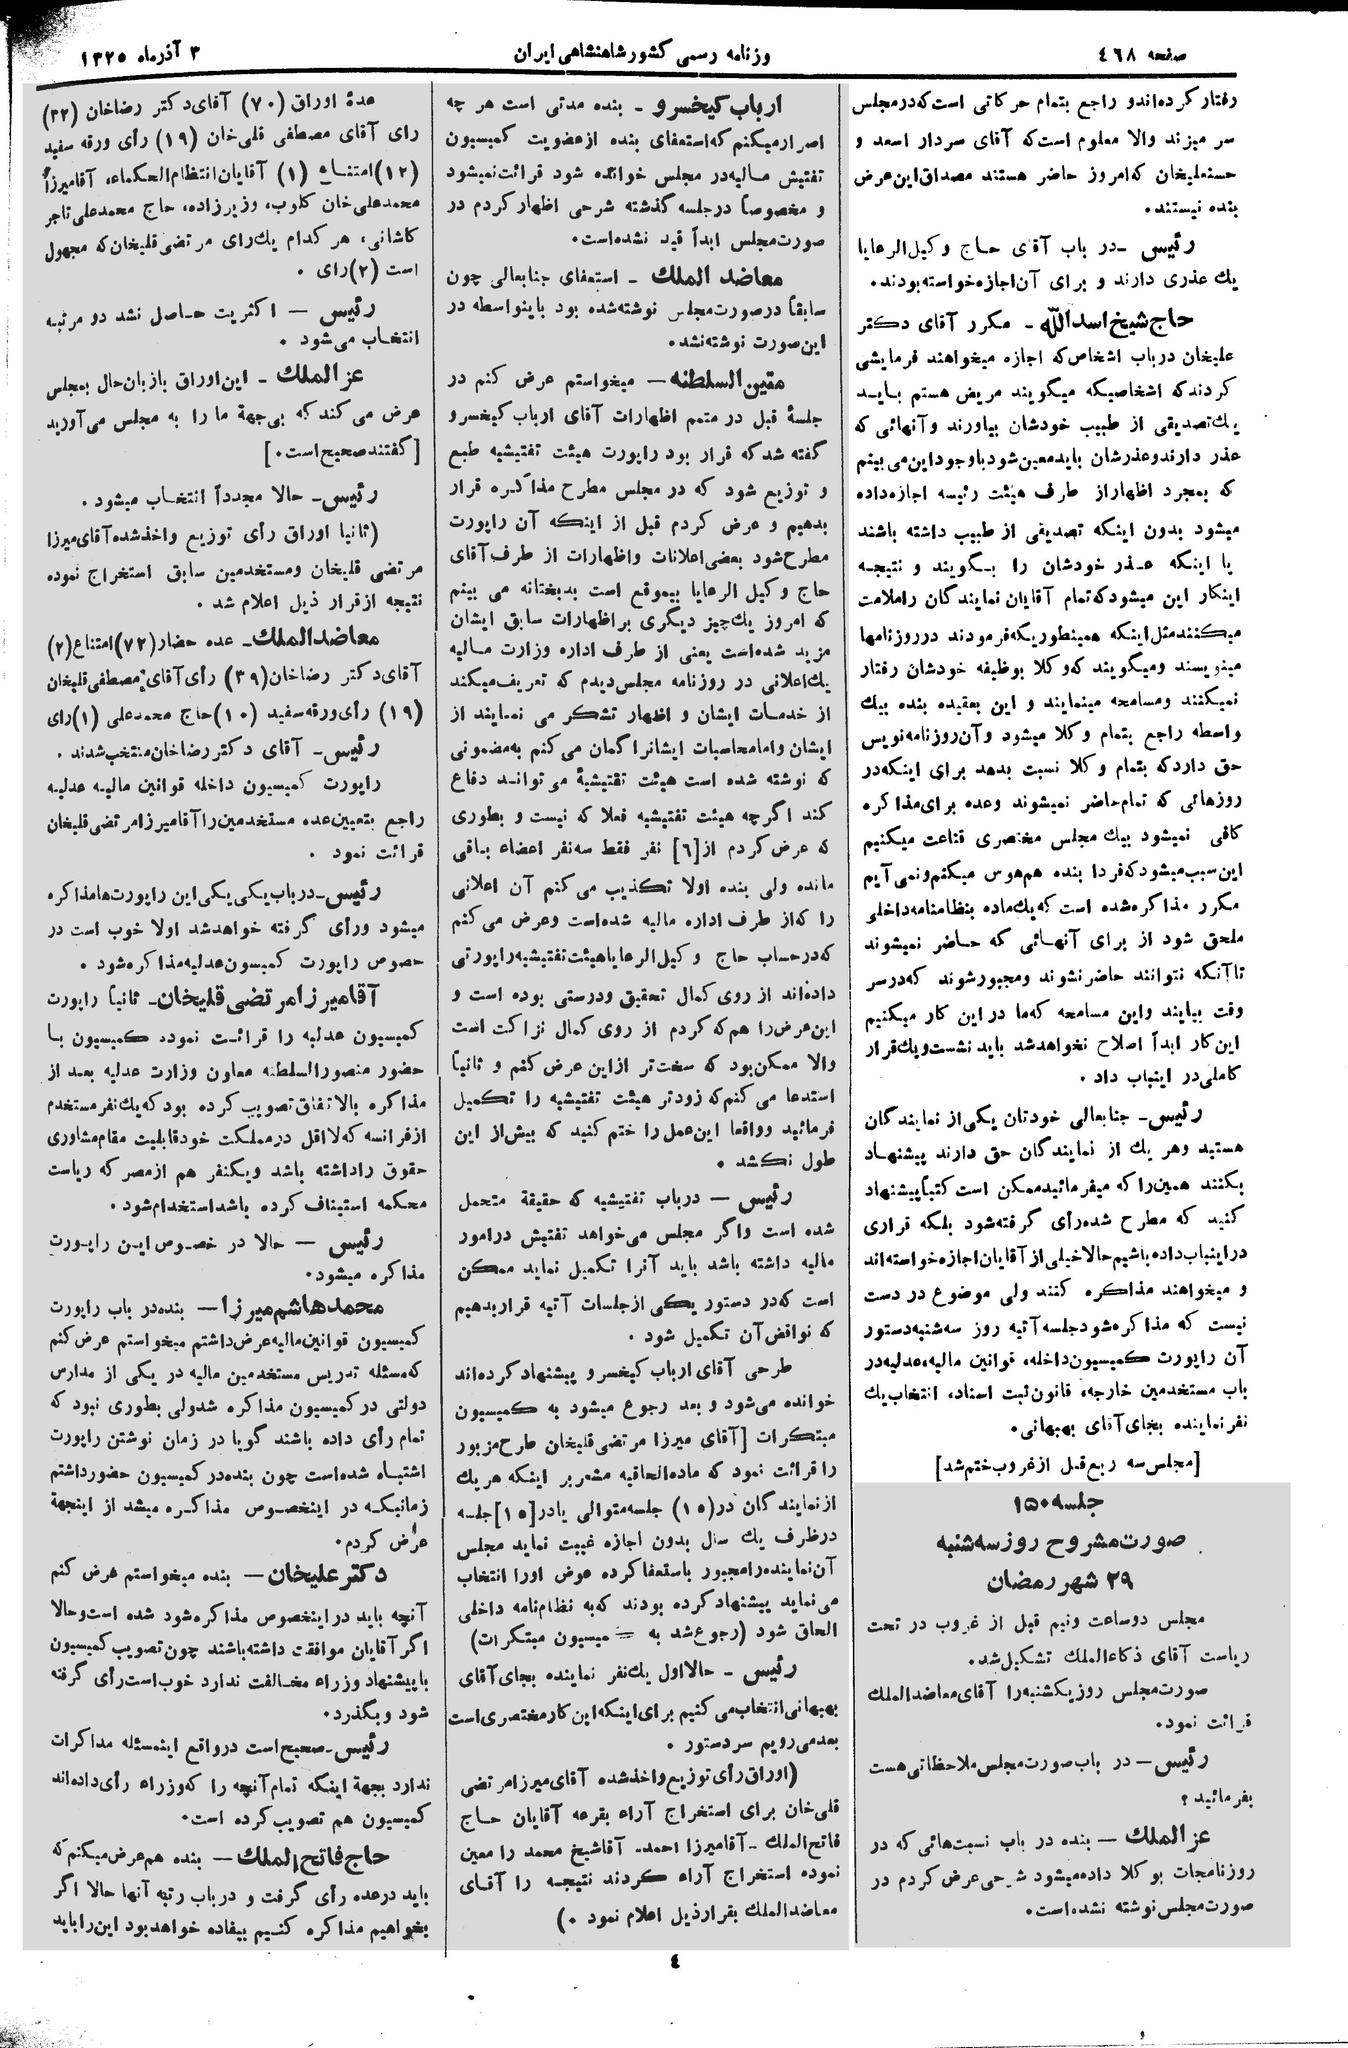 صفحه ٤٦٨
وزنامه رسمی کشورشاهنشاهی ایران
٣ آذرماه ١٣٢٥
رفتار کرده‌اندو راجع بتمام حرکاتی است‌که‌درمجلس
سر میزند والا معلوم است‌که آقای سردار اسعد و
حسنعلیخان که‌امروز حاضر هستند مصداق‌این‌عرض
بنده نیستند.
رئیس -در باب آقای حاج وکیل‌الرعایا
یك عذری دارند و برای آن‌اجازه‌خواسته‌بودند.
حاج‌شیخ‌اسدالله- مکرر آقای دکتر
علیخان درباب اشخاص‌که اجازه میخواهند فرمایشی
کردندکه اشخاصیکه میگویند مریض هستم بایـد
یك‌تصدیقی از طبیب خودشان بیاورند وآنهائی که
عذر دارندوعذرشان بایدمعین‌شودباوجوداین‌می‌بینم
که بمجرد اظهاراز طرف هیئت رئیسه اجازه‌داده
میشود بدون اینکه تصدیقی از طبیب داشته باشند
یا اینکه عـذر خودشان را بـگویند و نتیجـه
اینکار این میشودکه‌تمام آقایان نمایندگان راملامت
میکنندمثل‌اینکه همینطوریکه‌فرمودند درروزنامها
مینویسند ومیگویند که‌وکلا بوظیفه خودشان رفتار
نمیکنند ومسامحه مینمایند و این بعقیده بنده بیك
واسطه راجع بتمام وکلا میشود وآن‌روزنامه‌نویس
حق داردکه بتمام وکلا نسبت بدهد برای اینکه‌در
روزهائی که تمام‌حاضر نمیشوند وعده برای‌مذاکره
کافی نمیشود بیك مجلس مختصری قناعت میکنیم
این‌سبب‌میشودکه‌فردا بنده هم‌هوس میکنم‌ونمی‌آیم
مکرر مذاکره‌شده است که‌یك‌ماده بنظامنامه‌داخلی
ملحق شود از برای آنهائی که حـاضر نمیشوند
تاآنکه نتوانند حاضرنشوند ومجبورشوند که‌درسر
وقت بیایند واین مسامحه که‌ما در این کار میکنیم
این‌کار ابداً اصلاح نخواهدشد باید نشست‌ویك‌قرار
کاملی‌در اینباب داد .
رئیس- جنابعالی خودتان یکی‌از نمایندگان
هستید وهر یك از نمایندگان حق دارند پیشنهاد
بکنند همین‌راکه میفرمائیدممکن است کتباًپیشنهاد
کنید که مطرح شده‌رأی گرفته‌شود بلکه قراری
دراینباب‌داده‌باشیم‌حالاخیلی‌از‌آقایان‌اجازه‌خواسته‌اند
و میخواهند مذاکره کنند ولی موضوع در دست
نیست که مذاکره‌شودجلسه‌آتیه روز سه‌شنبه‌دستور
آن راپورت کمیسیون‌داخله، قوانین مالیه،عدلیه‌در
باب مستخدمین خارجه، قانون‌ثبت اسناد، انتخاب‌یك
نفرنماینده بجای‌آقای بهبهانی.
[مجلس‌سه ربع‌قبل ازغروب‌ختم‌شد]
جلسه ١٥٠
صورت‌مشروح روزسه‌شنبه
٢٩ شهررمضان
مجلس دوساعت ونیم قبل از غروب در تحت
ریاست آقای ذکاءالملك تشکیل‌شد.
صورت‌مجلس روزیکشنبه‌را آقای‌معاضدالملك
قرائت نمود.
رئیس- در باب‌صورت‌مجلس‌ملاحظاتی‌هست
بفرمائید؟
عزالملك- بنده در باب نسبت‌هائی که در
روزنامجات بوکلا داده‌میشود شرحی‌عرض‌کردم در
صورت‌مجلس‌نوشته نشده‌است.
ارباب‌کیخسرو - بنده مدتی است هر چه
اصرارمیکنم که‌استعفای بنده ازعضویت کمیسیون
تفتیش مالیه‌در مجلس خوانده شود قرائت‌نمیشود
و مخصوصاً درجلسه گذشته شرحی اظهارکردم در
صورت‌مجلس ابداً قید نشده‌است.
معاضدالملك - استعفای جنابعالی چون
سابقاً درصورت‌مجلس نوشته‌شده بود باینواسطه در
این‌صورت نوشته‌نشد.
متین‌السلطنه- میخواستم عرض کنم در
جلسهٔ قبل در متمم اظهارات آقای ارباب کیخسرو
گفته شدکه قرار بود راپورت هیئت تفتیشیه طبع
و توزیع شود که در مجلس مطرح مذاکره قرار
بدهیم و عرض کردم قبل از اینکه آن راپورت
مطرح‌شود بعضی‌اعلانات واظهارات از طرف‌آقای
حاج وکیل الرعایا بیموقع است بدبختانه می بینم
که امروز یك‌چیز دیگری براظهارات سابق ایشان
مزید شده‌است یعنی از طرف اداره وزارت مـالیه
یك‌اعلانی در روزنامه مجلس‌دیدم که تعریف‌میکند
از خدمات ایشان و اظهار تشکر می نمـایند از
ایشان وامامحاسبات ایشانراگمان می‌کنم به‌مضمونی
که نوشته شده است هیئت تفتیشیهٔ می‌توانـد دفاع
کند اگرچه هیئت تفتیشیه فعلا که نیست و بطوری
که عرض‌کردم از[٦] نفر فقط سه‌نفر اعضاء بـاقی
مانده ولی بنده اولا تکذیب می‌کنم آن اعلانی
را که‌از طرف اداره مالیه شده‌است وعرض می‌کنم
که‌درحساب حاج وکیل‌الرعایاهیئت‌تفتیشیه‌راپورتی
داده‌اند ازروی کمال تحقیق ودرستی بوده است و
این‌عرض‌را هم‌که کردم از روی کمال نزاکت است
والا ممکن‌بود که سخت‌تر ازاین عرض کنم و ثانیاً
استدعا می کنم‌که زودتر هیئت تفتیشیه را تکمیل
فرمائید وواقعا این‌عمل‌را ختم کنید که بیش‌از این
طول نکشد .
رئیس - درباب تفتیشیه که حقیقة متحمل
شده است واگر مجلس می‌خواهد تفتیش درامور
مالیه داشته باشد باید آنرا تکمیل نماید ممکن
است که‌در دستور یکی از‌جلسات آتیه قراربدهیم
که نواقص‌آن تکمیل شود .
طرحی آقای ارباب کیخسرو پیشنهاد کرده‌اند
خوانده می‌شود و بعد رجوع میشود به کمیسیون
مبتکرات [آقای میرزا مرتضی‌قلیخان طرح‌مزبور
را قرائت نمود که ماده‌الحاقیه مشعربر اینکه هریك
ازنمایندگان در(١٥) جلسه‌متوالی یادر[١٥]جلسه
درظرف یك سال بدون اجازه غیبت نماید مجلس
آن‌نماینده‌رامجبور باستعفاکرده عوض اورا انتخاب
می‌نماید پیشنهادکرده بودند که‌به نظام‌نامه داخلی
الحاق شود (رجوع‌شد به کمیسیون مبتکرات)
رئیس - حالااول یك‌نفر نماینده بجای‌آقای
بهبهانی‌انتخاب‌می‌کنیم برای‌اینکه‌این‌کارمختصری‌است
بعدمی‌رویم سردستور .
(اوراق‌رأی توزیع‌واخذشده آقای‌میرزامرتضی
قلی‌خان برای استخراج آراء بقرعه آقایان حـاج
فاتح‌الملك -آقامیرزا احمد- آقاشیخ محمد را معین
نموده استخراج آراء کـردند نتیجـه را آقـای
معاضدالملك بقرارذیل اعلام نمود .)
عدهٔ اوراق (٧٠) آقای‌دکتر رضاخان (٣٢)
رای آقای مصطفی قلی‌خان (١٩) رأی ورقه سفید
(١٢)امتناع (١) آقایان‌انتظام‌الحکماء، آقامیرزا
محمدعلی‌خان کلوب، وزیرزاده، حاج محمدعلی‌تاجر
کاشانی، هرکدام یك‌رای مرتضی‌قلیخان‌که مجهول
است (٢)رای .
رئیس - اکثریت حـاصل نشد دو مرتبـه
انتخاب می‌شود .
عزالملك - این‌اوراق بازبان‌حال بمجلس
عرض می‌کندکه بی‌جهة ما را به مجلس می‌آورید
[گفتندصحیح‌است.]
رئیس- حالا مجدداً انتخاب میشود.
(ثانیا اوراق رأی توزیع واخذشده‌آقای‌میرزا
مرتضی قلیخان ومستخدمین سابق استخراج نموده
نتیجه ازقرار ذیل اعلام شد .
معاضدالملك- عده حضار(٧٢)امتناع(٢)
آقای‌دکتر رضاخان(٣٩) رأی‌آقای‌مصطفی‌قلیخان
(١٩) رأی‌ورقه‌سفید (١٠)حاج محمدعلی (١)رای
رئیس- آقای دکتررضاخان‌منتخب‌شدند .
راپورت کمیسیون داخله قوانین مالیـه عدلیـه
راجع بتعیین‌عده مستخدمین‌راآقامیرزامرتضی‌قلیخان
قرائت نمود .
رئیس-درباب‌یکی‌یکی‌این راپورت‌هامذاکره
میشود ورأی گرفته خواهدشد اولا خوب است در
خصوص راپورت کمیسون‌عدلیه‌مذاکره‌شود .
آقامیرزامرتضی‌قلیخان- ثانیا راپورت
کمیسیون عدلیه را قرائـت نمود، کمیسیون بـا
حضور منصورالسلطنه معاون وزارت عدلیه بعد از
مذاکره بالاتفاق‌تصویب کرده بودکه‌یك‌نفرمستخدم
ازفرانسه که‌لااقل درمملکت خودقابلیت مقام‌مشاوری
حقوق راداشته باشد ویکنفر هم ازمصرکه ریاست
محکمه استیناف کرده باشداستخدام‌شود.
رئیس - حالا در خصوص‌ایـن راپـورت
مذاکره میشود.
محمدهاشم‌میرزا- بنده‌در باب راپورت
کمیسیون قوانین‌مالیه‌عرض‌داشتم میخواستم عرض‌کنم
که‌مسئله تدریس مستخدمین مالیه در یکی از مدارس
دولتی درکمیسیون مذاکره شدولی بطوری نبود که
تمام‌رأی داده باشند گویا در زمان نوشتن راپورت
اشتباه شده‌است چون بنده‌درکمیسیون حضورداشتم
زمانیکـه در اینخصوص مذاکره میشد از اینجهة
عرض کردم.
دکترعلیخان- بنده میخواستم عرض کنم
آنچه باید دراینخصوص مذاکره‌شود شده است‌وحالا
اگرآقایان موافقت داشته‌باشند چون‌تصویب‌کمیسیون
باپیشنهاد وزراء مخـالفت ندارد خوب‌است‌رأی گرفته
شود وبگذرد.
رئیس-صحیح‌است درواقع اینمسئله مذاکرات
ندارد بجهة اینکه تمام‌آنچه را که‌وزراء رأی‌داده‌اند
کمیسیون هم تصویب‌کرده است.
حاج‌فاتح‌الملك- بنده هم‌عرض‌میکنم‌که
باید درعده رأی گرفت و درباب رتبه آنها حالا اگر
بخواهیم مذاکره کنـیم بیفاده خواهدبود این‌راباید
٤